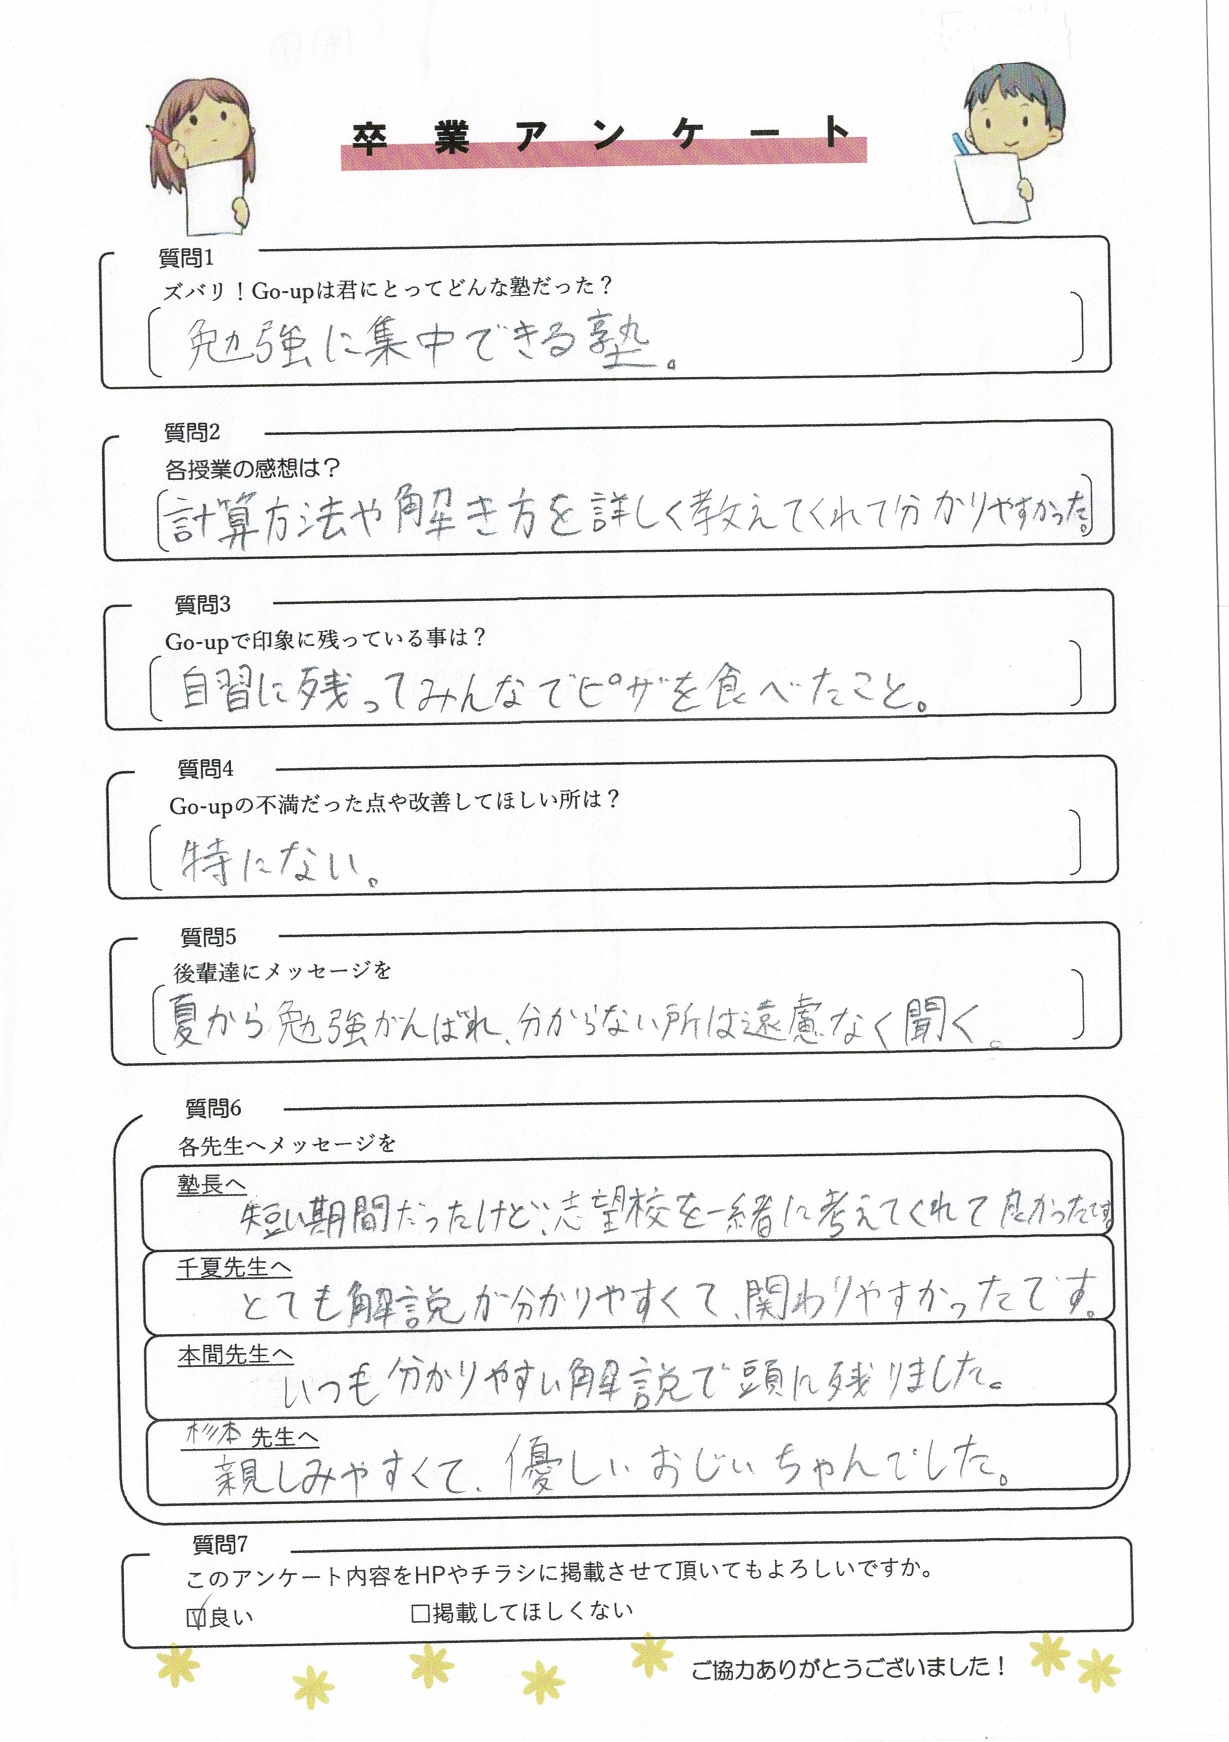 卒業アンケート
質問1
ズバリ！Go-upは君にとってどんな塾だった？
勉強に集中できる塾。
質問2
各授業の感想は？
計算方法や解き方を詳しく教えてくれて分かりやすかった。
質問3
Go-upで印象に残っている事は？
自習に残ってみんなでピザを食べたこと。
質問4
Go-upの不満だった点や改善してほしい所は？
特にない。
質問5
後輩達にメッセージを
夏から勉強がんばれ、分からない所は遠慮なく聞く。
質問6
各先生へメッセージを
塾長へ
短い期間だったけど、志望校を一緒に考えてくれて良かったです
千夏先生へ
とても解説が分かりやすくて、関わりやすかったです。
本間先生へ
いつも分かりやすい解説で頭に残りました。
杉本先生へ
親しみやすくて、優しいおじいちゃんでした。
質問7
このアンケート内容をHPやチラシに掲載させて頂いてもよろしいですか。
☑良い □掲載してほしくない
ご協力ありがとうございました！